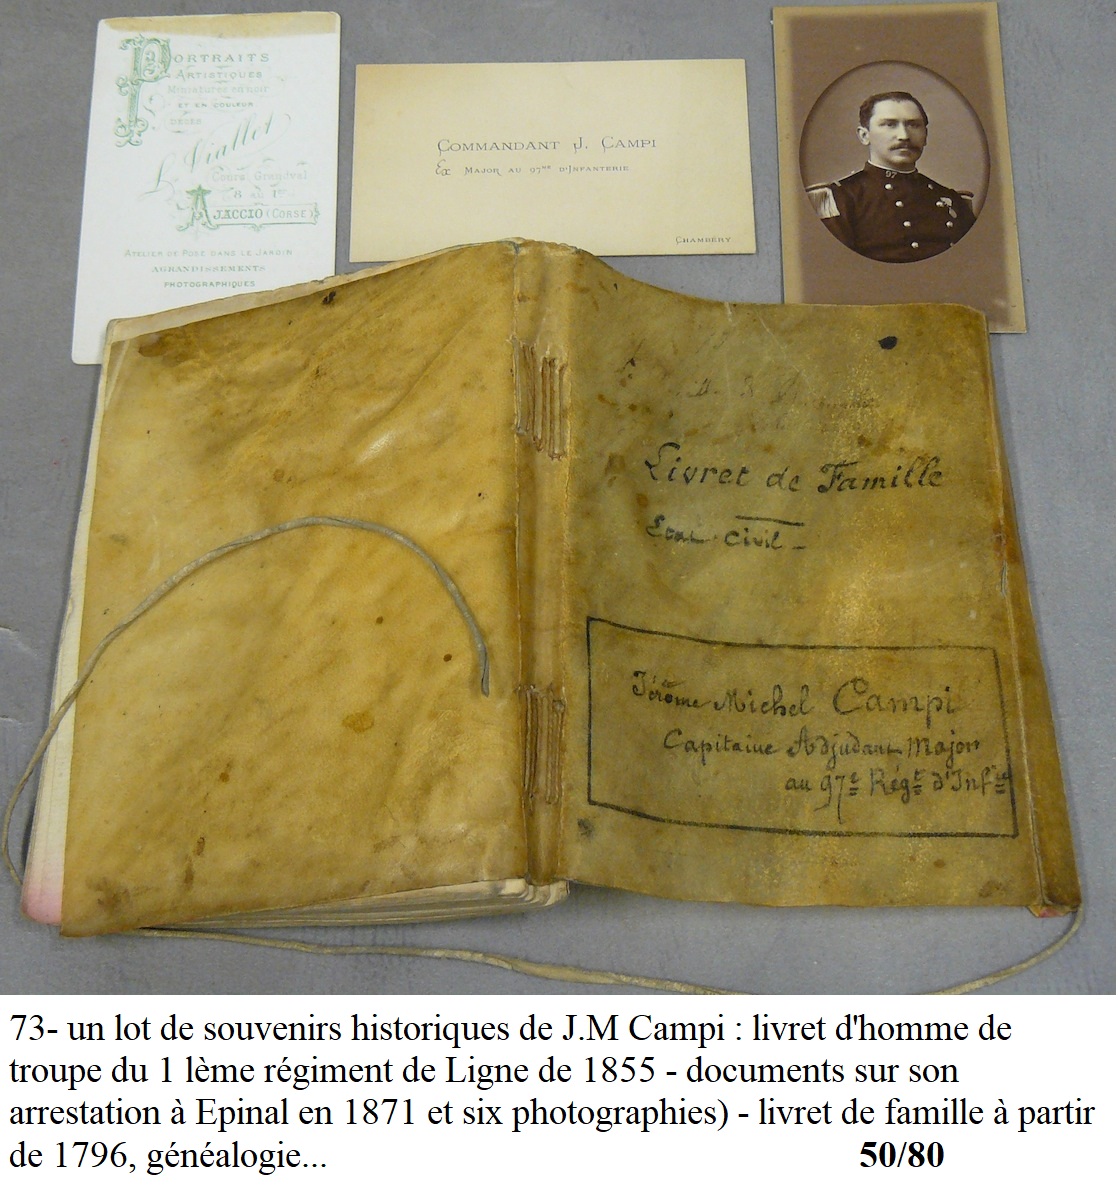 PORTRAITS
ARTISTIQUES
Miniatures en noir
ET EN COULEUR
L. Viallet
Cours Grandval
8 au 1er
AJACCIO (CORSE)
ATELIER DE POSE DANS LE JARDIN
AGRANDISSEMENTS
PHOTOGRAPHIQUES
COMMANDANT J. CAMPI
Ex MAJOR AU 97me D'INFANTERIE
CHAMBÉRY
97
Livret de Famille
Etat Civil -
Jérôme Michel Campi
Capitaine Adjudant Major
au 97e Régt d'Infie
73- un lot de souvenirs historiques de J.M Campi : livret d'homme de
troupe du 1 lème régiment de Ligne de 1855 - documents sur son
arrestation à Epinal en 1871 et six photographies) - livret de famille à partir
de 1796, généalogie...
50/80